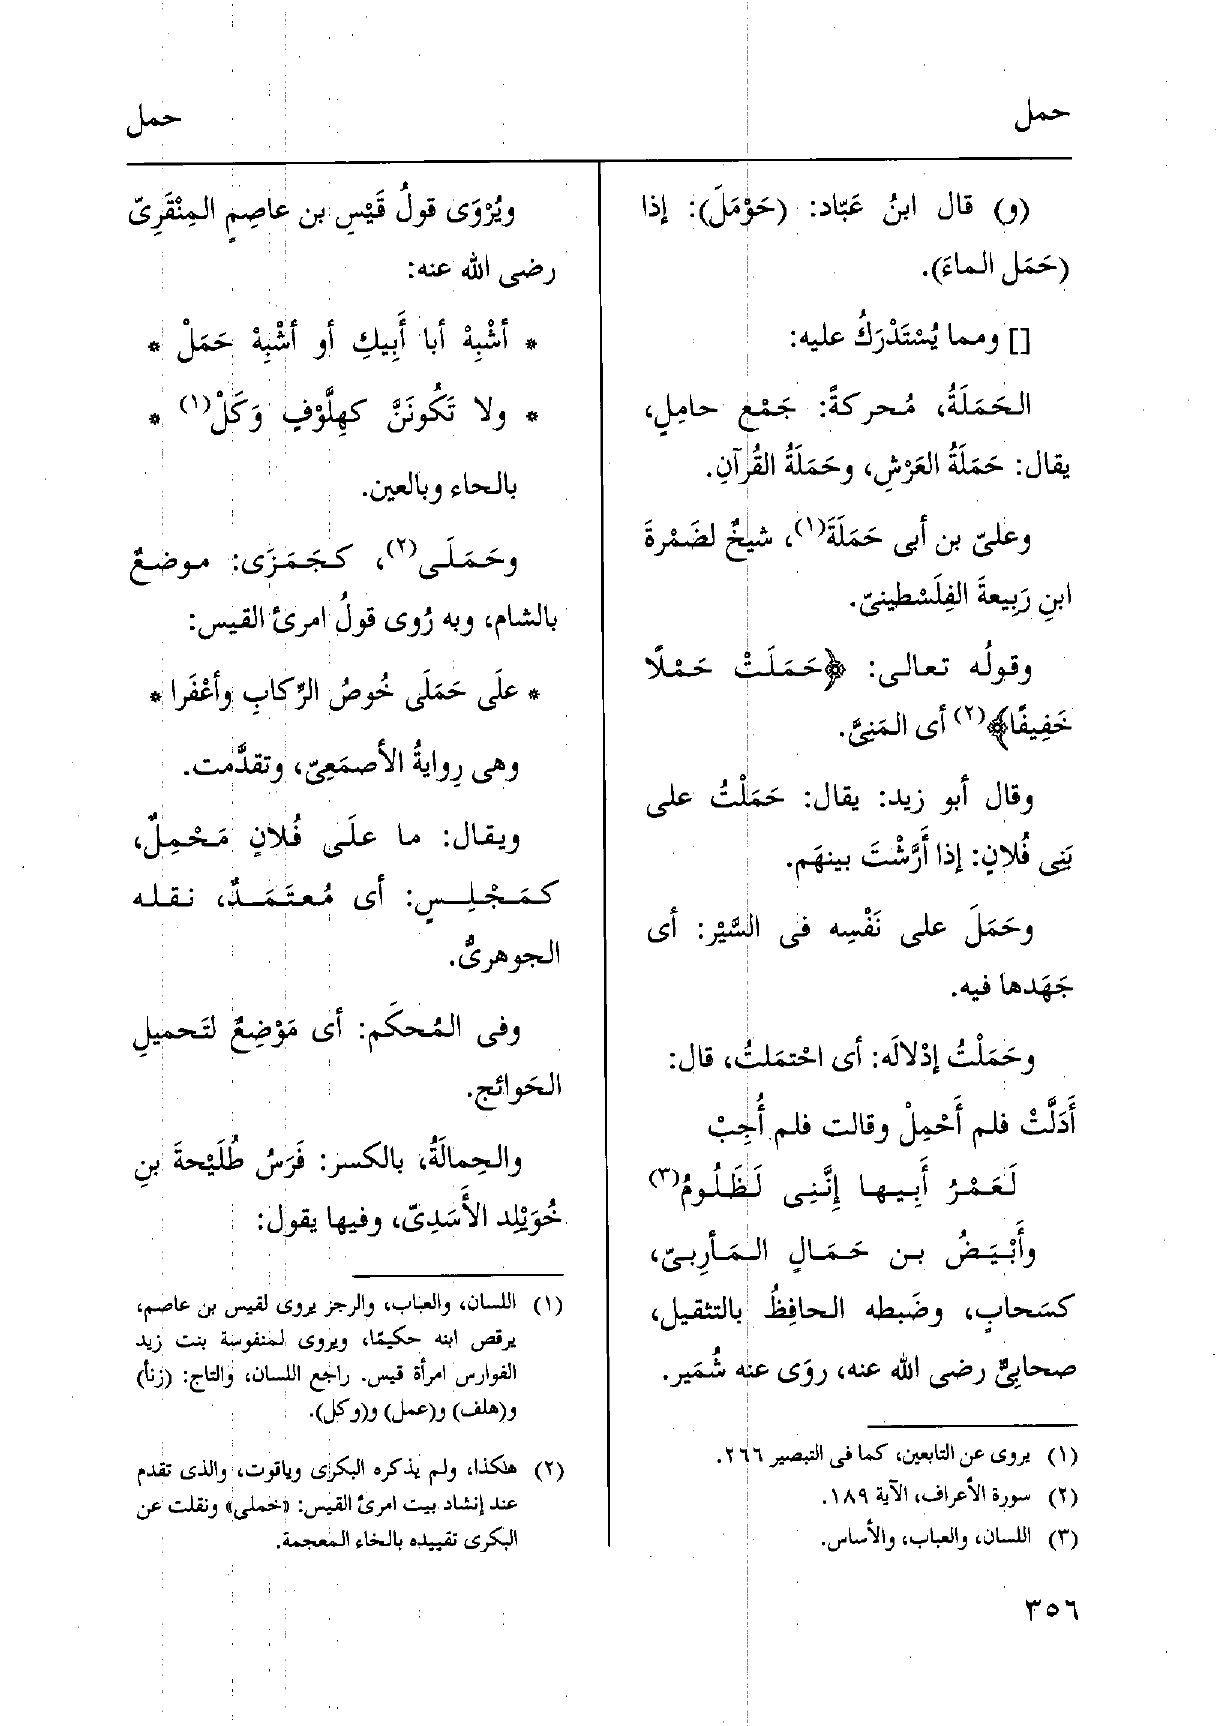 حمل
حمل
(و) قال ابنُ عَبّاد: (حَوْمَلَ): إذا
(حَمَل الماءَ).
[] ومما يُسْتَدْرَكُ عليه:
الحَمَلَةُ، مُحركةً: جَمْع حامِلٍ،
يقال: حَمَلَةُ العَرْشِ، وحَمَلَةُ القُرآنِ.
وعلىّ بن أبى حَمَلَةَ(١)، شيخٌ لضَمْرةَ
ابنِ رَبِيعةَ الفِلَسْطينىّ.
وقولُه تعالى: ﴿حَمَلَتْ حَمْلًا
خَفِيفًا﴾(٢) أى المَنِىَّ.
وقال أبو زيد: يقال: حَمَلْتُ على
بَنِى فُلانٍ: إذا أَرَّشْتَ بينهَم.
وحَمَلَ على نَفْسِه فى السَّيْر: أى
جَهَدها فيه.
وحَمَلْتُ إدْلالَه: أى احْتمَلتُ، قال:
أَدَلَّتْ فلم أَحْمِلْ وقالت فلم أُجِبْ
لَعَمْرُ أَبِيها إِنَّنِى لَظَلُومُ(٣)
وأَبْيَضُ بن حَمَالٍ المَأرِبىّ،
كسَحابٍ، وضَبطه الحافِظُ بالتثقيل،
صحابِىٌّ رضى الله عنه، روَى عنه شُمَير.
(١) يروى عن التابعين، كما فى التبصير ٢٦٦.
(٢) سورة الأعراف، الآية ١٨٩.
(٣) اللسان، والعباب، والأساس.
٣٥٦
ويُرْوَى قولُ قَيْسِ بن عاصِمٍ المِنْقَرِىّ
رضى الله عنه:
* أشْبِهْ أبا أَبِيكِ أو أشْبِهْ حَمَلْ *
* ولا تَكُونَنَّ كهِلَّوْفٍ وَكَلْ(١) *
بالحاء وبالعين.
وحَمَلَى(٢)، كجَمَزَى: موضعٌ
بالشام، وبه رُوى قولُ امرئ القيس:
* علَى حَمَلَى خُوصُ الرِّكابِ وأعْفَرا *
وهى رِوايةُ الأصمَعِىّ، وتقدَّمت.
ويقال: ما علَى فُلانٍ مَحْمِلٌ،
كمَجْلِسٍ: أى مُعتَمَدٌ، نقله
الجوهرىُّ.
وفى المُحكَم: أى مَوْضِعٌ لتَحميلِ
الحَوائج.
والحِمالَةُ، بالكسر: فَرَسُ طُلَيْحةَ بنِ
خُوَيْلِد الأَسَدِىّ، وفيها يقول:
(١) اللسان، والعباب، والرجز يروى لقيس بن عاصم،
يرقص ابنه حكيمًا، ويروى لمنفوسة بنت زيد
الفوارس امرأة قيس. راجع اللسان، والتاج: (زنأ)
و(هلف) و(عمل) و(وكل).
(٢) هكذا، ولم يذكره البكرى وياقوت، والذى تقدم
عند إنشاد بيت امرئ القيس: «خملى» ونقلت عن
البكرى تقييده بالخاء المعجمة.